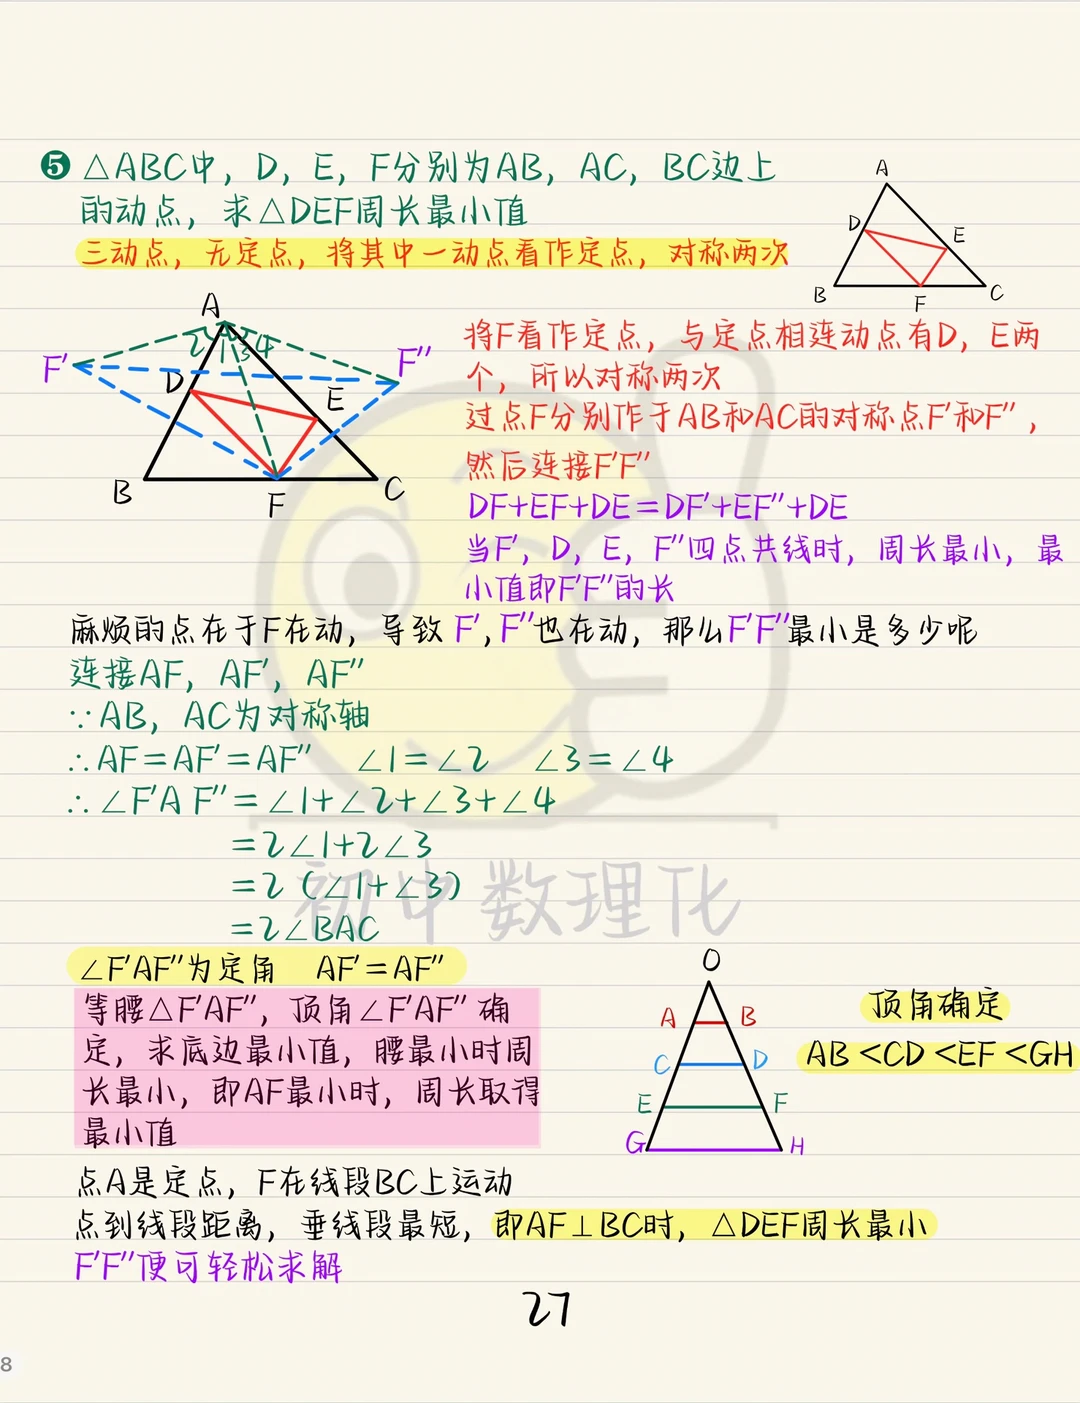 ❺ △ABC中，D，E，F分别为AB，AC，BC边上
的动点，求△DEF周长最小值
三动点，无定点，将其中一动点看作定点，对称两次
A
D
E
B
F
C
A
2
1
3
4
F′
F″
D
E
B
F
C
将F看作定点，与定点相连动点有D，E两
个，所以对称两次
过点F分别作于AB和AC的对称点F′和F″，
然后连接F′F″
DF+EF+DE=DF′+EF″+DE
当F′，D，E，F″四点共线时，周长最小，最
小值即F′F″的长
麻烦的点在于F在动，导致F′,F″也在动，那么F′F″最小是多少呢
连接AF，AF′，AF″
∵AB，AC为对称轴
∴AF=AF′=AF″ ∠1=∠2 ∠3=∠4
∴∠F′AF″=∠1+∠2+∠3+∠4
=2∠1+2∠3
=2（∠1+∠3）
=2∠BAC
初中数理化
∠F′AF″为定角 AF′=AF″
等腰△F′AF″，顶角∠F′AF″确
定，求底边最小值，腰最小时周
长最小，即AF最小时，周长取得
最小值
O
A B
C D
E F
G H
顶角确定
AB<CD<EF<GH
点A是定点，F在线段BC上运动
点到线段距离，垂线段最短，即AF⊥BC时，△DEF周长最小
F′F″便可轻松求解
27
8